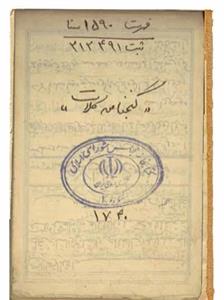 فهرست ۱۵۹۰ سنا
ثبت ۲۱۳۴۹۱
"گنجنامه کلات"
کتابخانه مجلس شورای اسلامی
۱۷۴۰